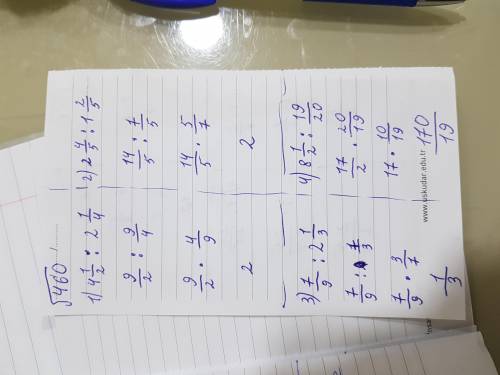 √460
1) 4 1/2 : 2 1/4
9/2 : 9/4
9/2 · 4/9
2
2) 2 4/5 : 1 2/5
14/5 : 7/5
14/5 · 5/7
2
3) 7/9 : 2 1/3
7/9 : 7/3
7/9 · 3/7
1/3
4) 8 1/2 : 19/20
17/2 · 20/19
17 · 10/19
170/19
www.uskudar.edu.tr